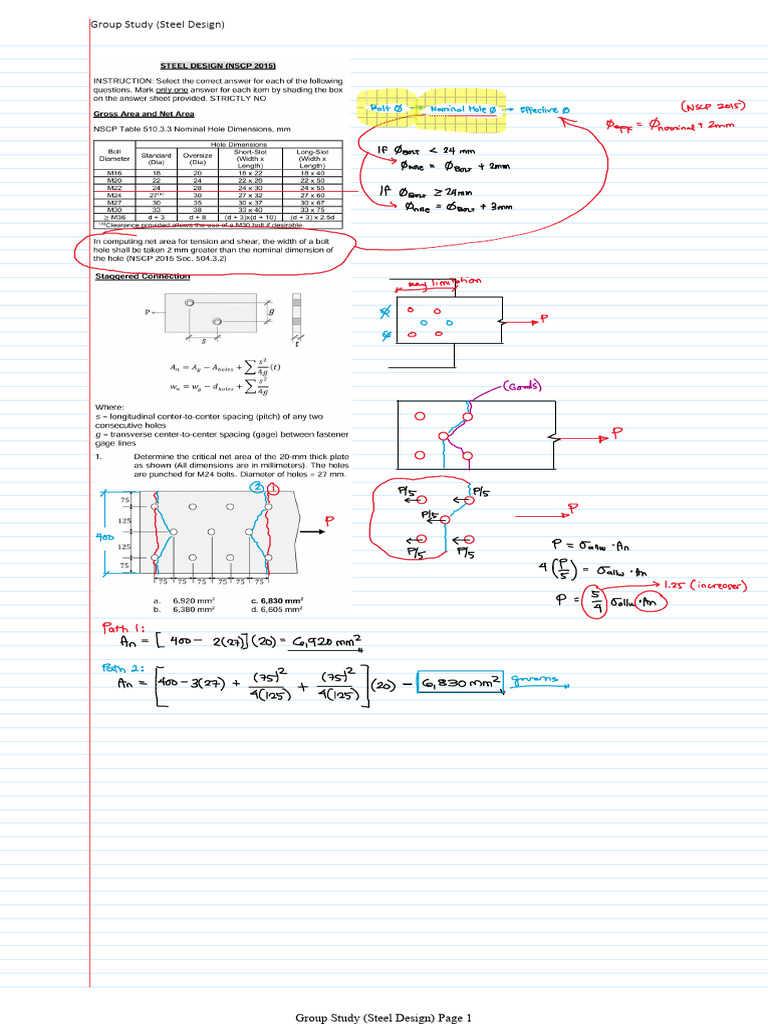 Group Study (Steel Design)
STEEL DESIGN (NSCP 2015)
INSTRUCTION: Select the correct answer for each of the following
questions. Mark only one answer for each item by shading the box
on the answer sheet provided. STRICTLY NO
Gross Area and Net Area
NSCP Table 510.3.3 Nominal Hole Dimensions, mm
Bolt Diameter | Hole Dimensions
Standard (Dia) | Oversize (Dia) | Short-Slot (Width x Length) | Long-Slot (Width x Length)
M16 | 18 | 20 | 18 x 22 | 18 x 40
M20 | 22 | 24 | 22 x 26 | 22 x 50
M22 | 24 | 28 | 24 x 30 | 24 x 55
M24 | 27(a) | 30 | 27 x 32 | 27 x 60
M27 | 30 | 35 | 30 x 37 | 30 x 67
M30 | 33 | 38 | 33 x 40 | 33 x 75
≥ M36 | d + 3 | d + 8 | (d + 3)x(d + 10) | (d + 3) x 2.5d
(a)Clearance provided allows the use of a M30 bolt if desirable.
In computing net area for tension and shear, the width of a bolt
hole shall be taken 2 mm greater than the nominal dimension of
the hole (NSCP 2015 Sec. 504.3.2)
Bolt Ø → Nominal Hole Ø → Effective Ø
(NSCP 2015)
Øeff = Ønominal + 2mm
If ØBolt < 24 mm
ØHole = ØBolt + 2mm
If ØBolt ≥ 24mm
ØHole = ØBolt + 3mm
Staggered Connection
P
g
s
t
An = Ag − Aholes + ∑ s²/4g (t)
wn = wg − dholes + ∑ s²/4g
Where:
s – longitudinal center-to-center spacing (pitch) of any two
consecutive holes
g – transverse center-to-center spacing (gage) between fastener
gage lines
P
(Goods)
P
1. Determine the critical net area of the 20-mm thick plate
as shown (All dimensions are in millimeters). The holes
are punched for M24 bolts. Diameter of holes = 27 mm.
② ①
75
125
125
75
400
P
75 75 75 75 75 75
P/5 P/5
P/5
P/5 P/5
P
P = σallw · An
4(P/5) = σallw · An
P = 5/4 σallw · An
1.25 (increaser)
a. 6,920 mm² c. 6,830 mm²
b. 6,380 mm² d. 6,605 mm²
Path 1:
An = [ 400 − 2(27)](20) = 6,920 mm²
Path 2:
An = [400 − 3(27) + (75)²/4(125) + (75)²/4(125)](20) − 6,830 mm² governs
Group Study (Steel Design) Page 1